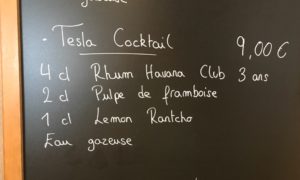 gazeuse
- Tesla Cocktail 9,00 €
4 cl Rhum Havana Club 3 ans
2 cl Pulpe de framboise
1 cl Lemon Rantcho
Eau gazeuse